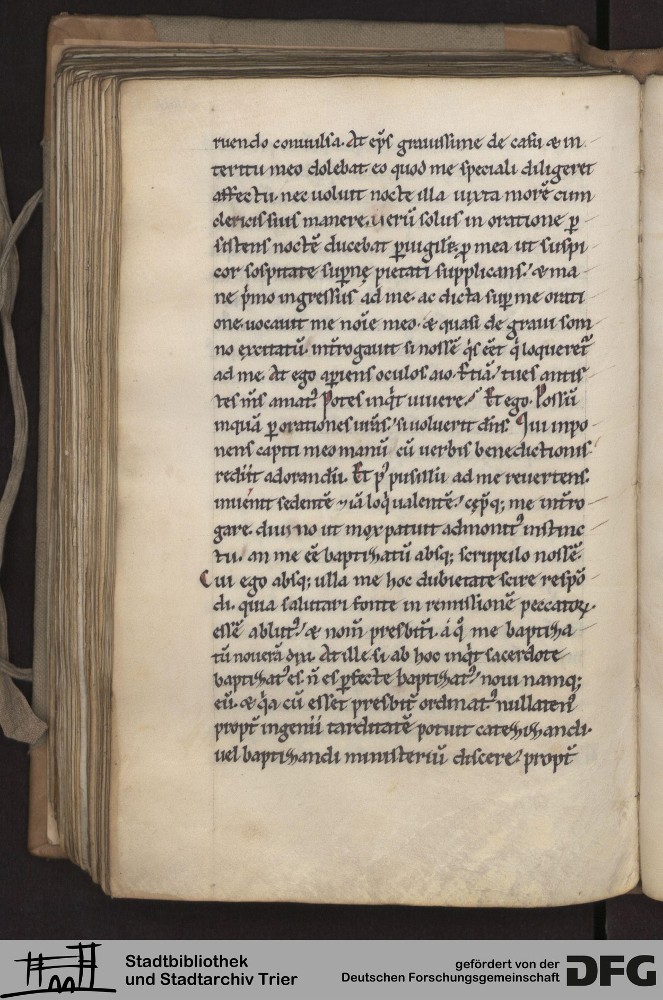 ruendo conuulsa. At ep̄s grauissime de casu & in
teritu meo dolebat. eo quod me speciali diligeret
affectu. nec uoluit nocte illa iuxta morē cum
clericis suis manere. uerū solus in oratione p̱
sistens noctē ducebat p̱uigilē. ꝓ mea ut suspi
cor sospitate sup̱nę pietati supplicans. & ma
ne p̄mo ingressus ad me. ac dicta sup̱ me orati
one. uocauit me noīe meo. & quasi de graui som
no excitatū. int̄rogauit si nossē q̇s eēt q̇ loqueret᷑
ad me. At ego ap̱iens oculos aio. Etiā. tu es antis
tes m̄s amat᷒. Potes inq̇t uiuere. Et ego. Possū
inquā p̱ orationes ūr̄as. si uoluerit dn̄s. Qui inpo
nens capiti meo manū cū uerbis benedictionis.
rediit ad orandū. Et p᷒ pusillū ad me reuertens.
inuenit sedentē & iā loq̇ ualentē. cępq; me int̄ro
gare. diuino ut mox patuit admonit᷒ instinc
tu. an me eē baptizatū absq; scrupulo nossē.
Cui ego absq; ulla me hoc dubietate scire respō
di. quia salutari fonte in remissionē peccatoꝝ
essē ablut᷒. & nom̄ presbit̄i. a q̊ me baptiza
tū nouerā dixi. At ille. si ab hoc inq̇t sacerdote
baptizat᷒ es. n̄ es p̱fecte baptizat᷒. noui namq;
eū. & q̇a cū esset presbit̄ ordinat᷒. nullaten᷒
propt̄ ingenii tarditatē potuit catezizandi.
uel baptizandi ministeriū discere. propt̄
Stadtbibliothek
und Stadtarchiv Trier
gefördert von der
Deutschen Forschungsgemeinschaft
DFG